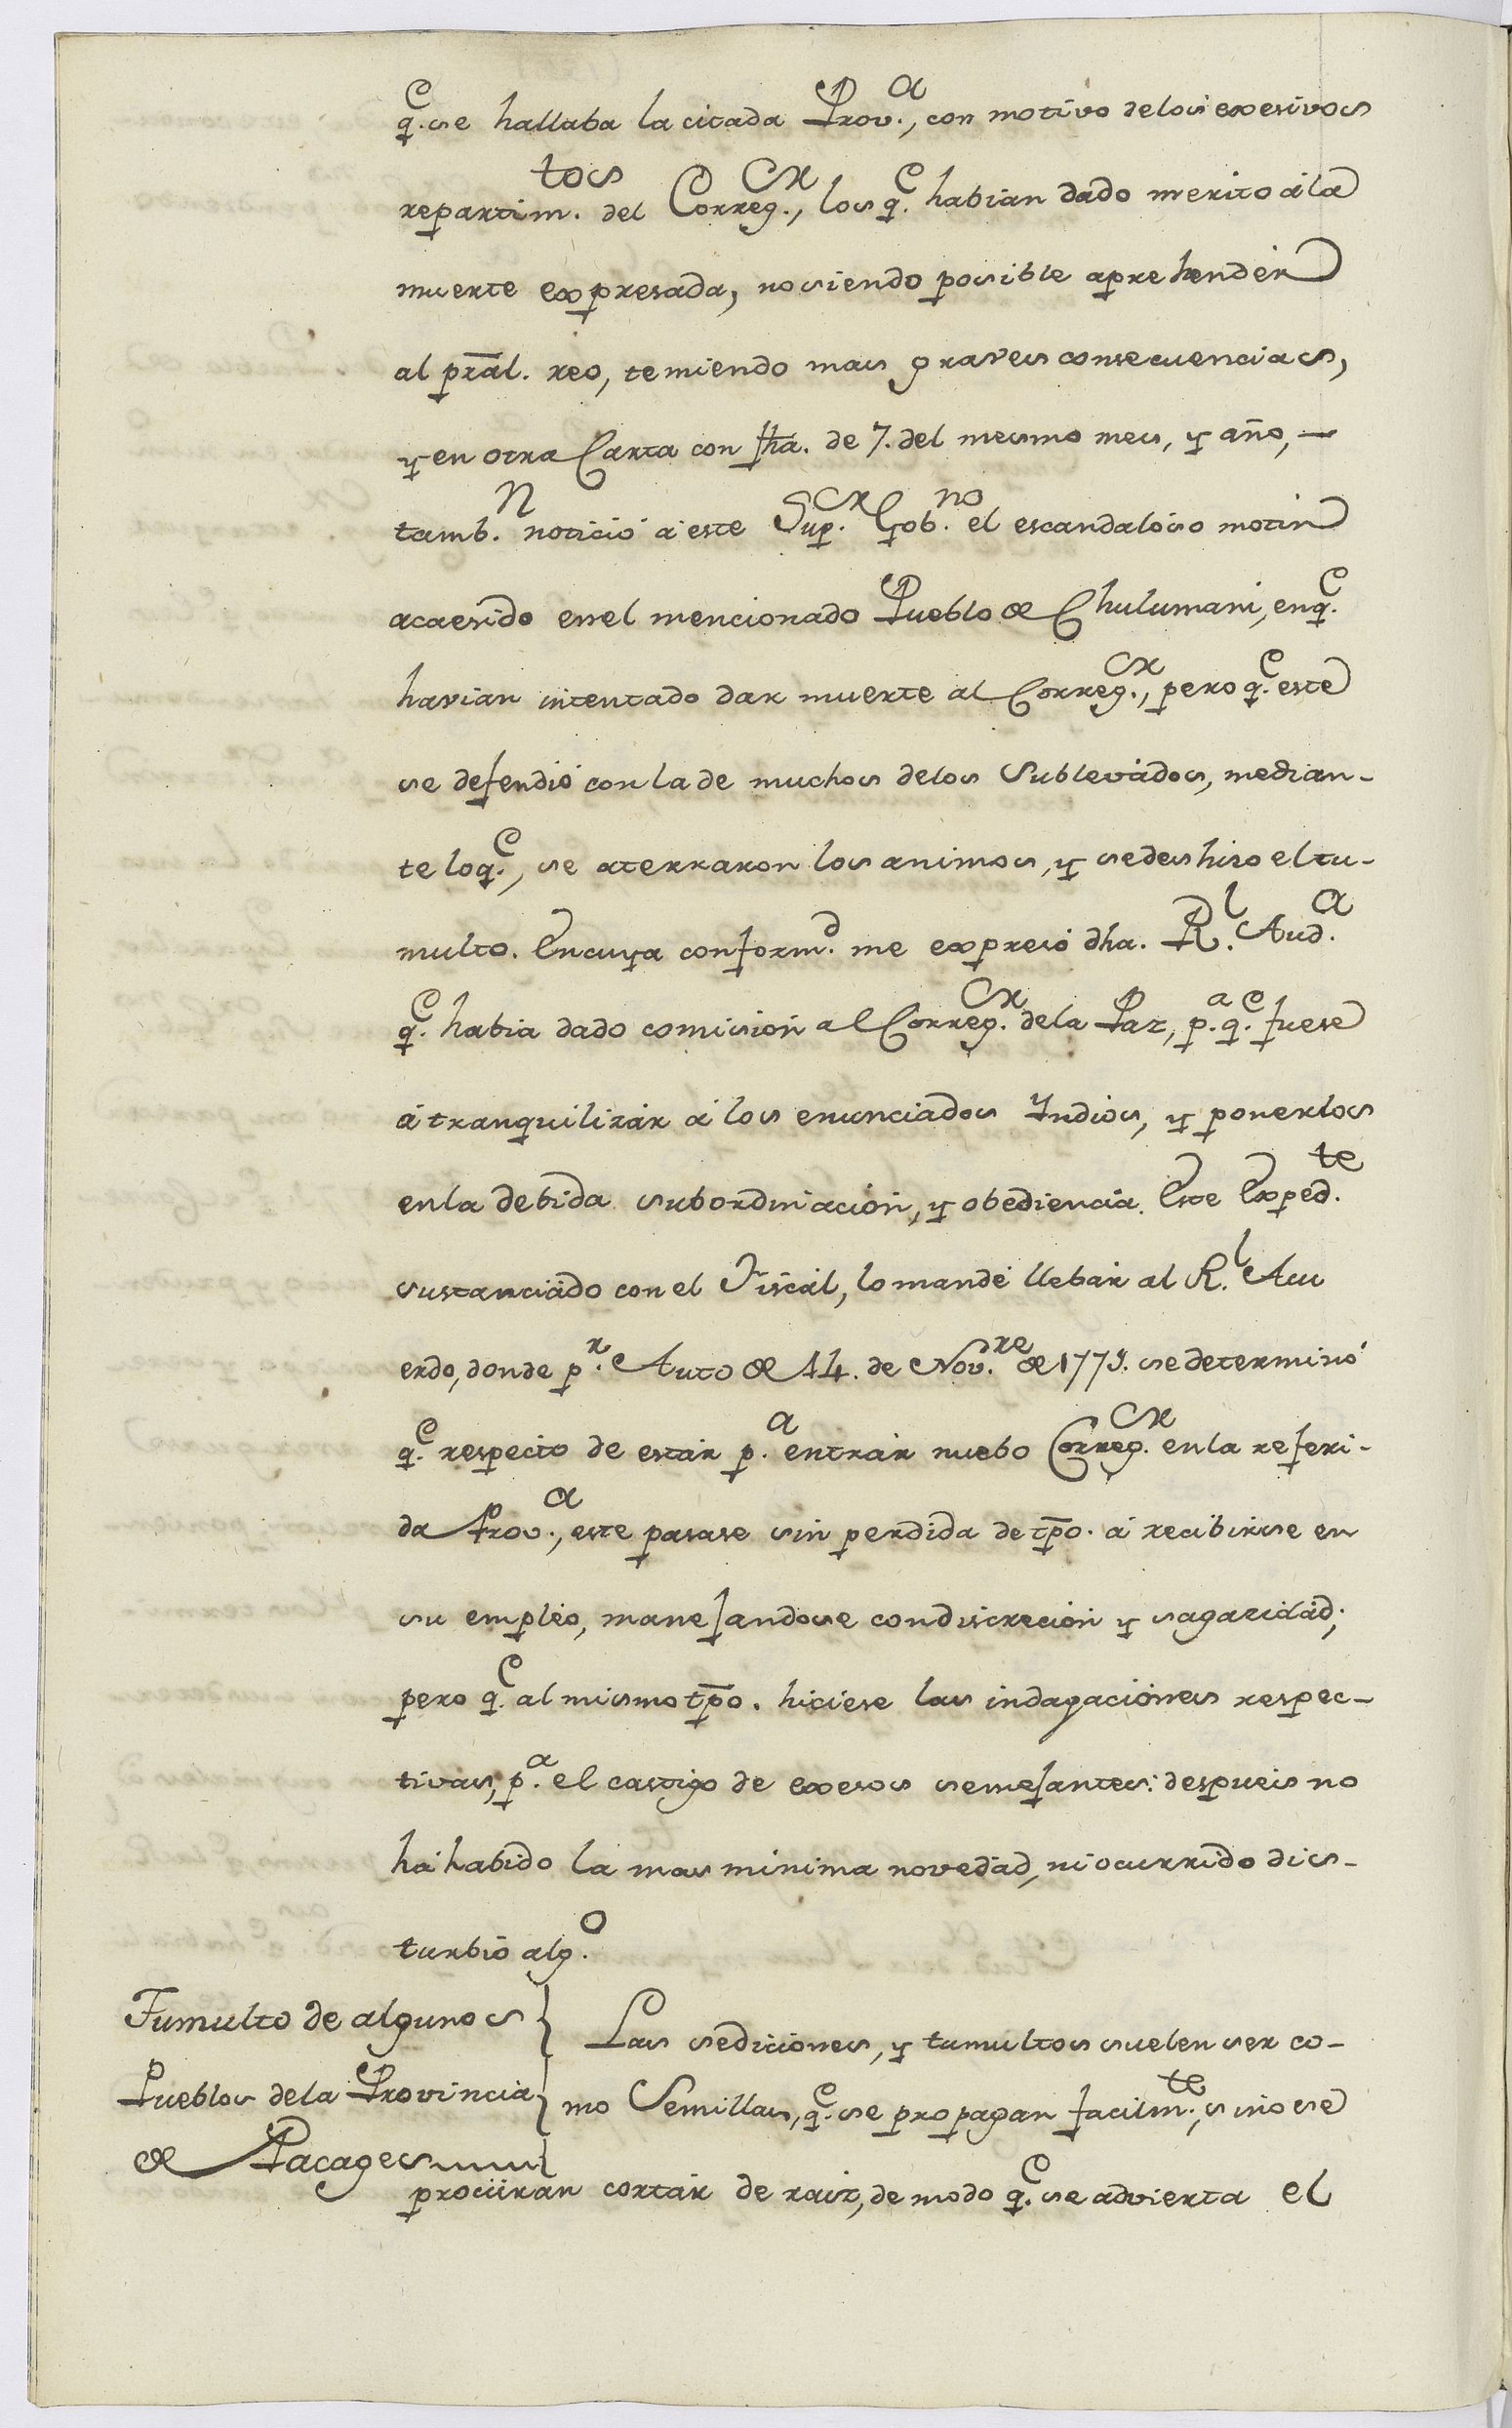 q.e se hallaba la citada Prov.a, con motivo delos exesivos
repartim.tos del Correg.or, los q.e habian dado merito á la
muerte expresada, no siendo posible aprehender
al prãl. reo, temiendo mas graves consecuencias,
y en otra Carta con fha. de 7. del mesmo mes, y año,
tamb.n notició á este Sup.or Gob.no el escandaloso motin
acaesido enel mencionado Pueblo de Chulumani, enq.e
havian intentado dar muerte al Correg.or, pero q.e este
se defendió con la de muchos delos Sublevados, median-
te loq.e, se aterraron los animos, y sedeshiso el tu-
multo. En cuya conform.d me expresó dha. R.l Aud.a
q.e habia dado comision al Correg.or dela Paz, p.a q.e fuese
á tranquilizár á los enunciados Yndios, y ponerlos
enla debida subordinacion, y obediencia. Este Exped.te
sustanciado con el Fiscál, lo mandé llebar al R.l Acu
erdo, donde p.r Auto de 14. de Nov.re de 1771. se determinó
q.e respecto de estár p.a entrár nuebo Correg.or en la referi-
da Prov.a, este pasase sin perdida de tpõ. á recibirse en
su empleo, manejandose con discrecion y sagacidad;
pero q.e al mismo tpõ. hiciese las indagaciones respec-
tivas, p.a el castigo de exesos semejantes: despues no
há habido la mas minima novedad, ni ocurrido dis-
turbio alg.o
Tumulto de algunos
Pueblos dela Provincia
de Pacages
Las sediciones, y tumultos suelen ser co-
mo Semillas, q.e se propagan facilm.te, sino se
procuran cortár de raiz, de modo q.e se advierta el